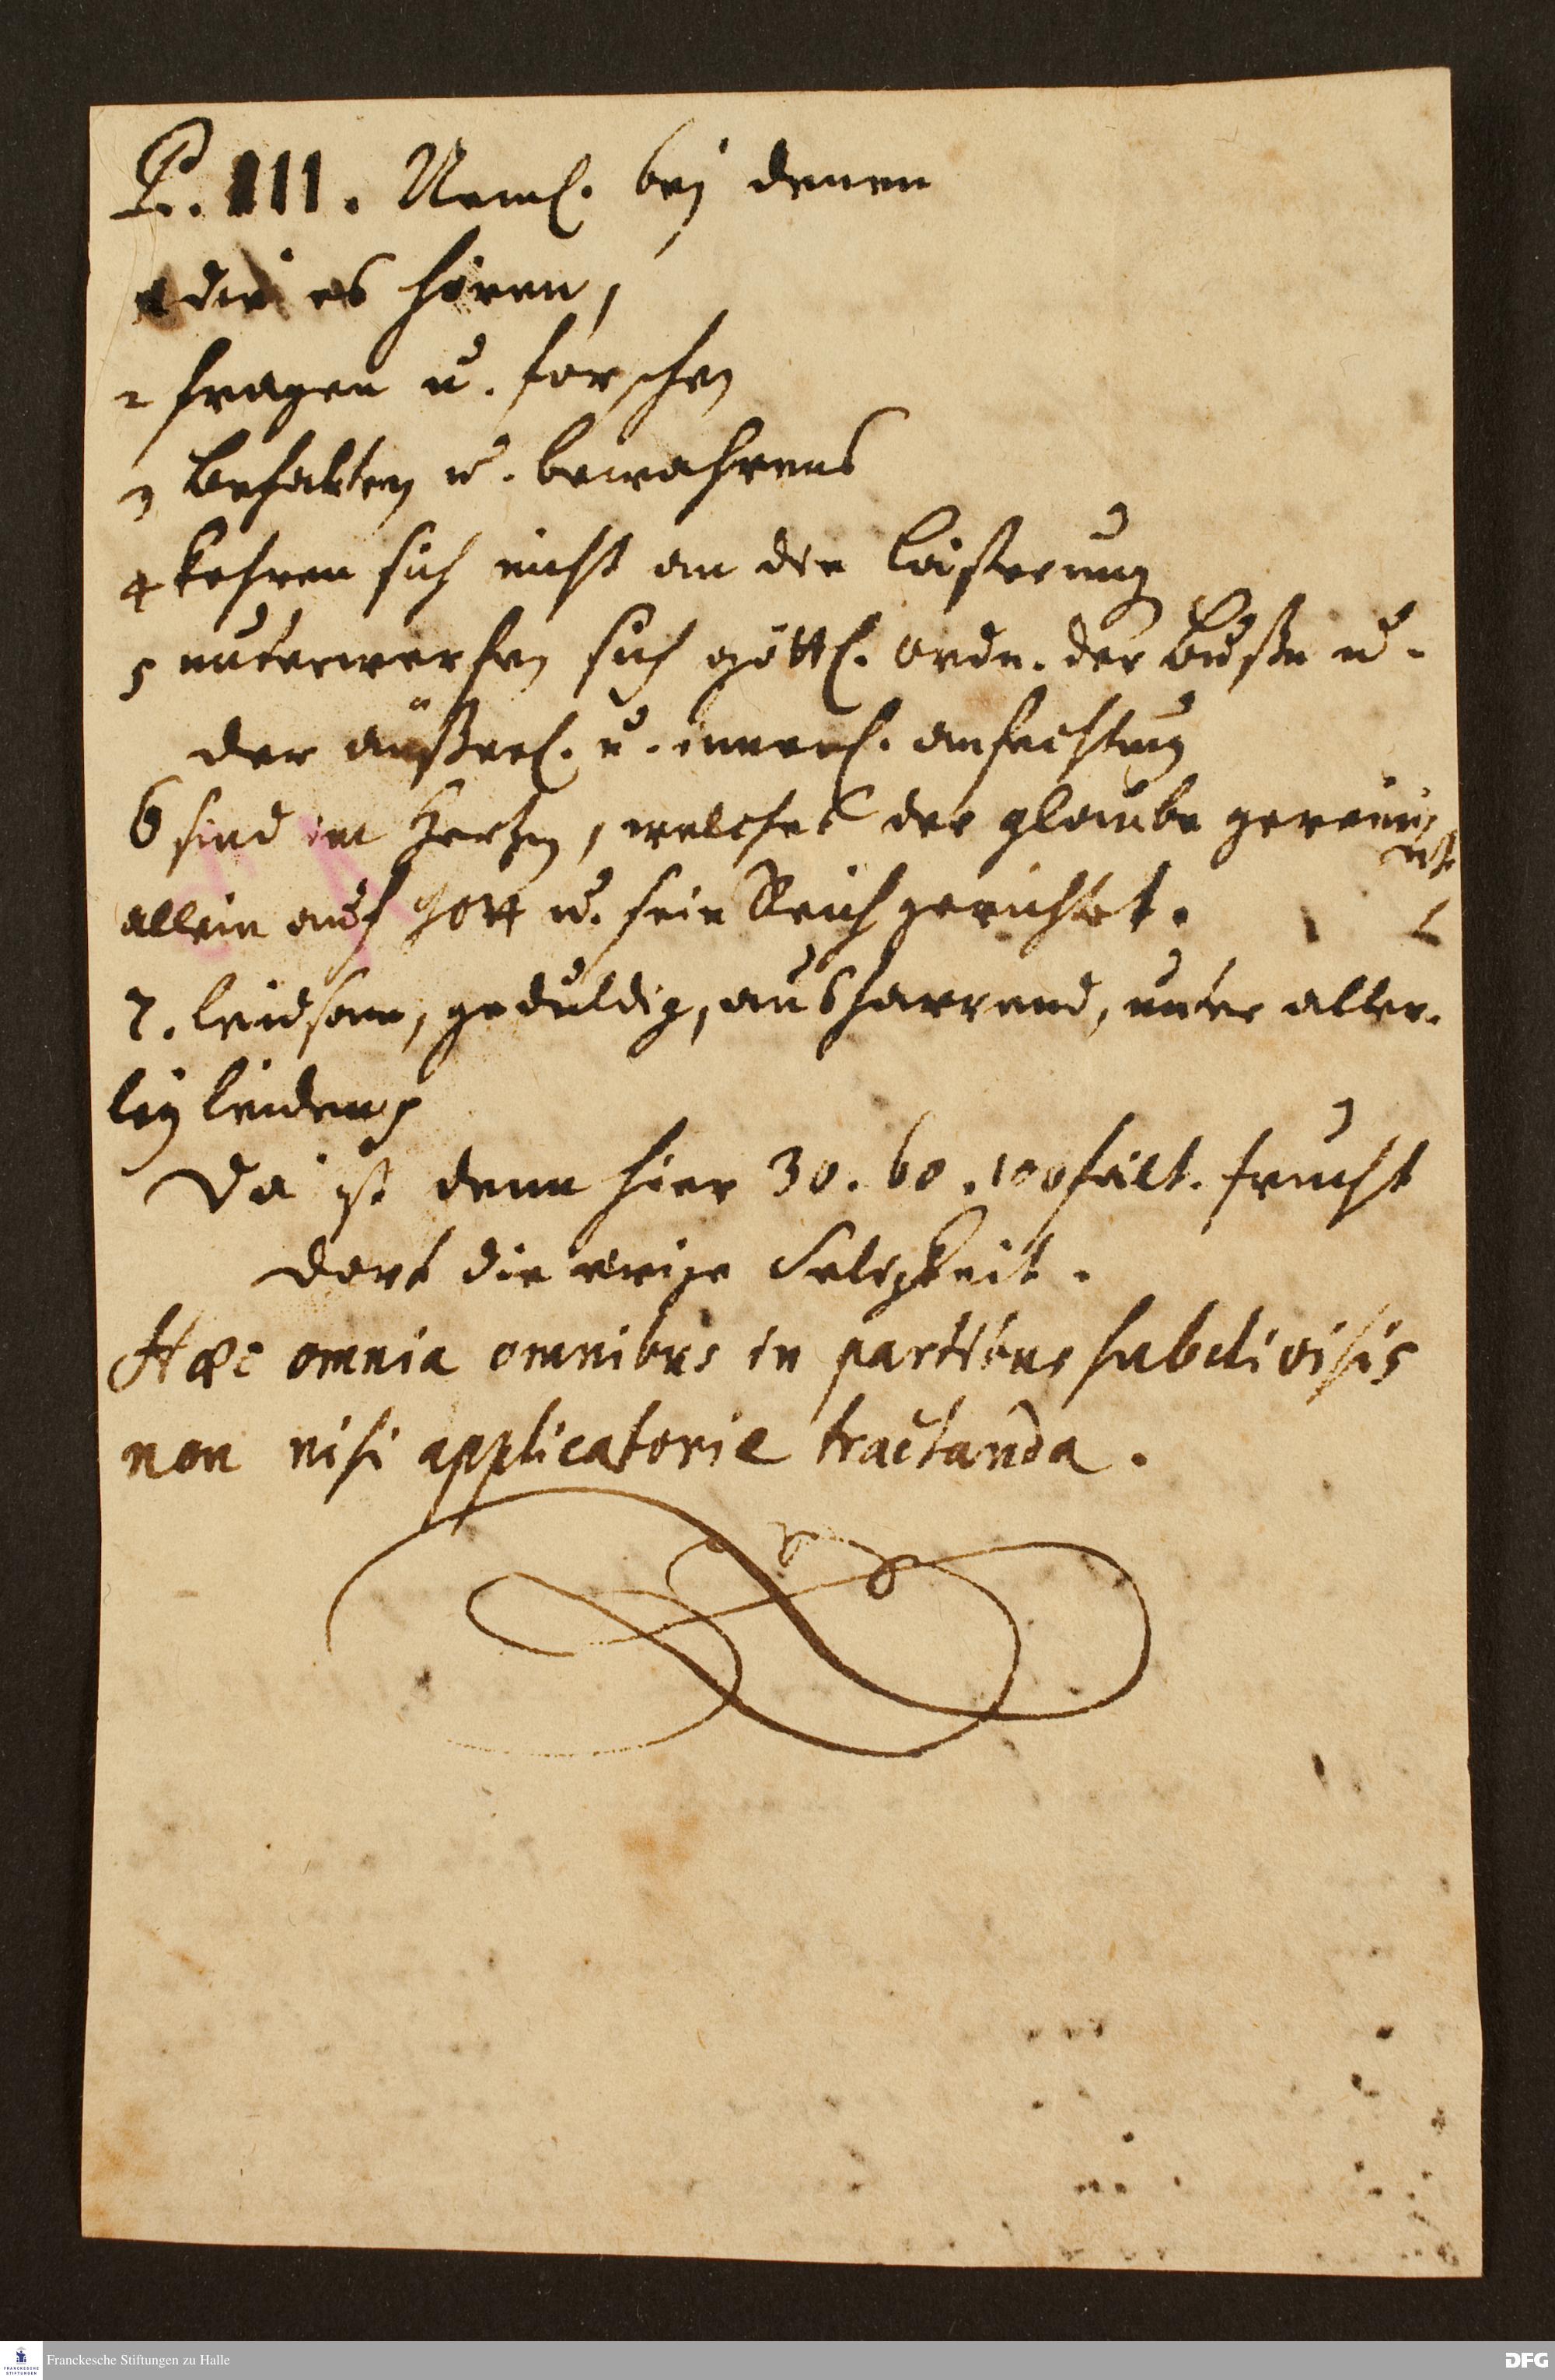 P. III. Neml. bej denen
1 die es hören,
2 fragen u. forschen
3 behalten u. bewahrens
4 kehren sich nicht an die Lästerung
5 unterwerfen sich göttl. Ordn. der Buße u.
der äußerl. u. innerl. anfechtung
6 sind im Hertzen, welches der glaube gereinig
allein auf Gott u. sein Reich gerichtet.
7. leidsam, geduldig, ausharrend, unter aller-
ley leiden
Da ist denn hier 30. 60. 100fält. frucht
dort die ewige Seligkeit.
Hæc omnia omnibus in partibus subdivisis
non nisi applicatorie tractanda.
Franckesche Stiftungen zu Halle
FRANCKESCHE STIFTUNGEN
DFG